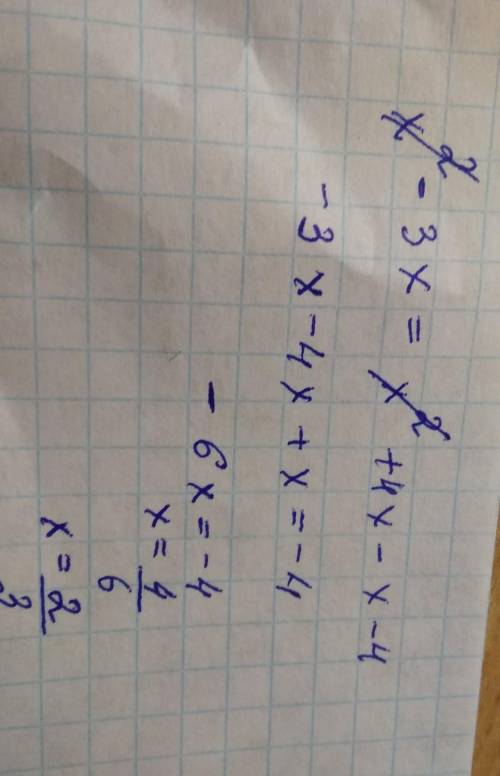 x² - 3x = x² + 4x - x - 4
-3x - 4x + x = -4
- 6x = -4
x = 4/6
x = 2/3